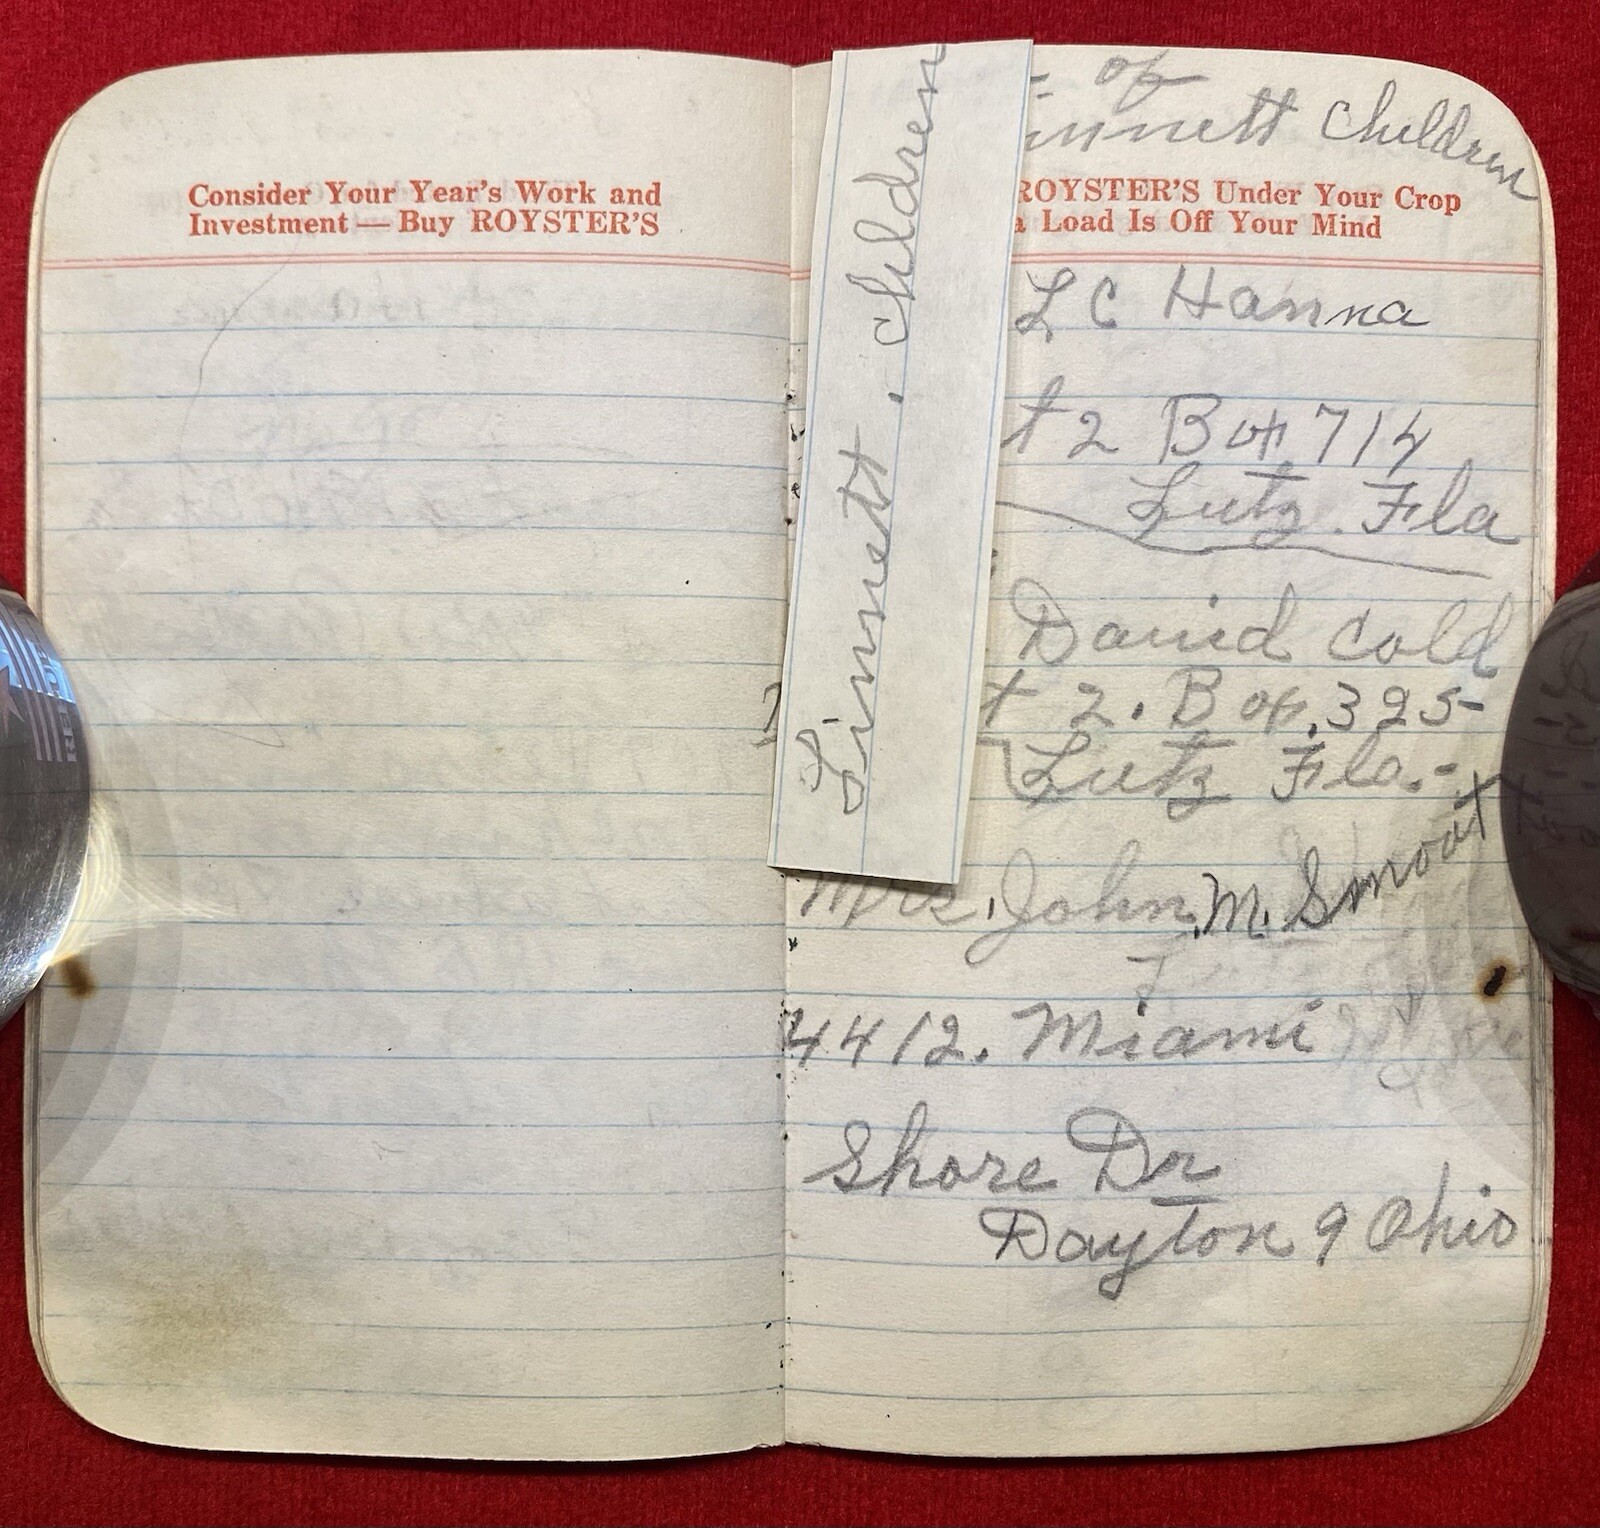 Consider Your Year's Work and
Investment — Buy ROYSTER'S
Linnett. children
of
Children
ROYSTER'S Under Your Crop
a Load Is Off Your Mind
L C Hanna
t 2 Box 714
Lutz. Fla
David Cold
t 2. Box. 325-
Lutz Fla.-
Mrs. John. M. Smoat
4412. Miami
Shore Dr
Dayton 9 Ohio